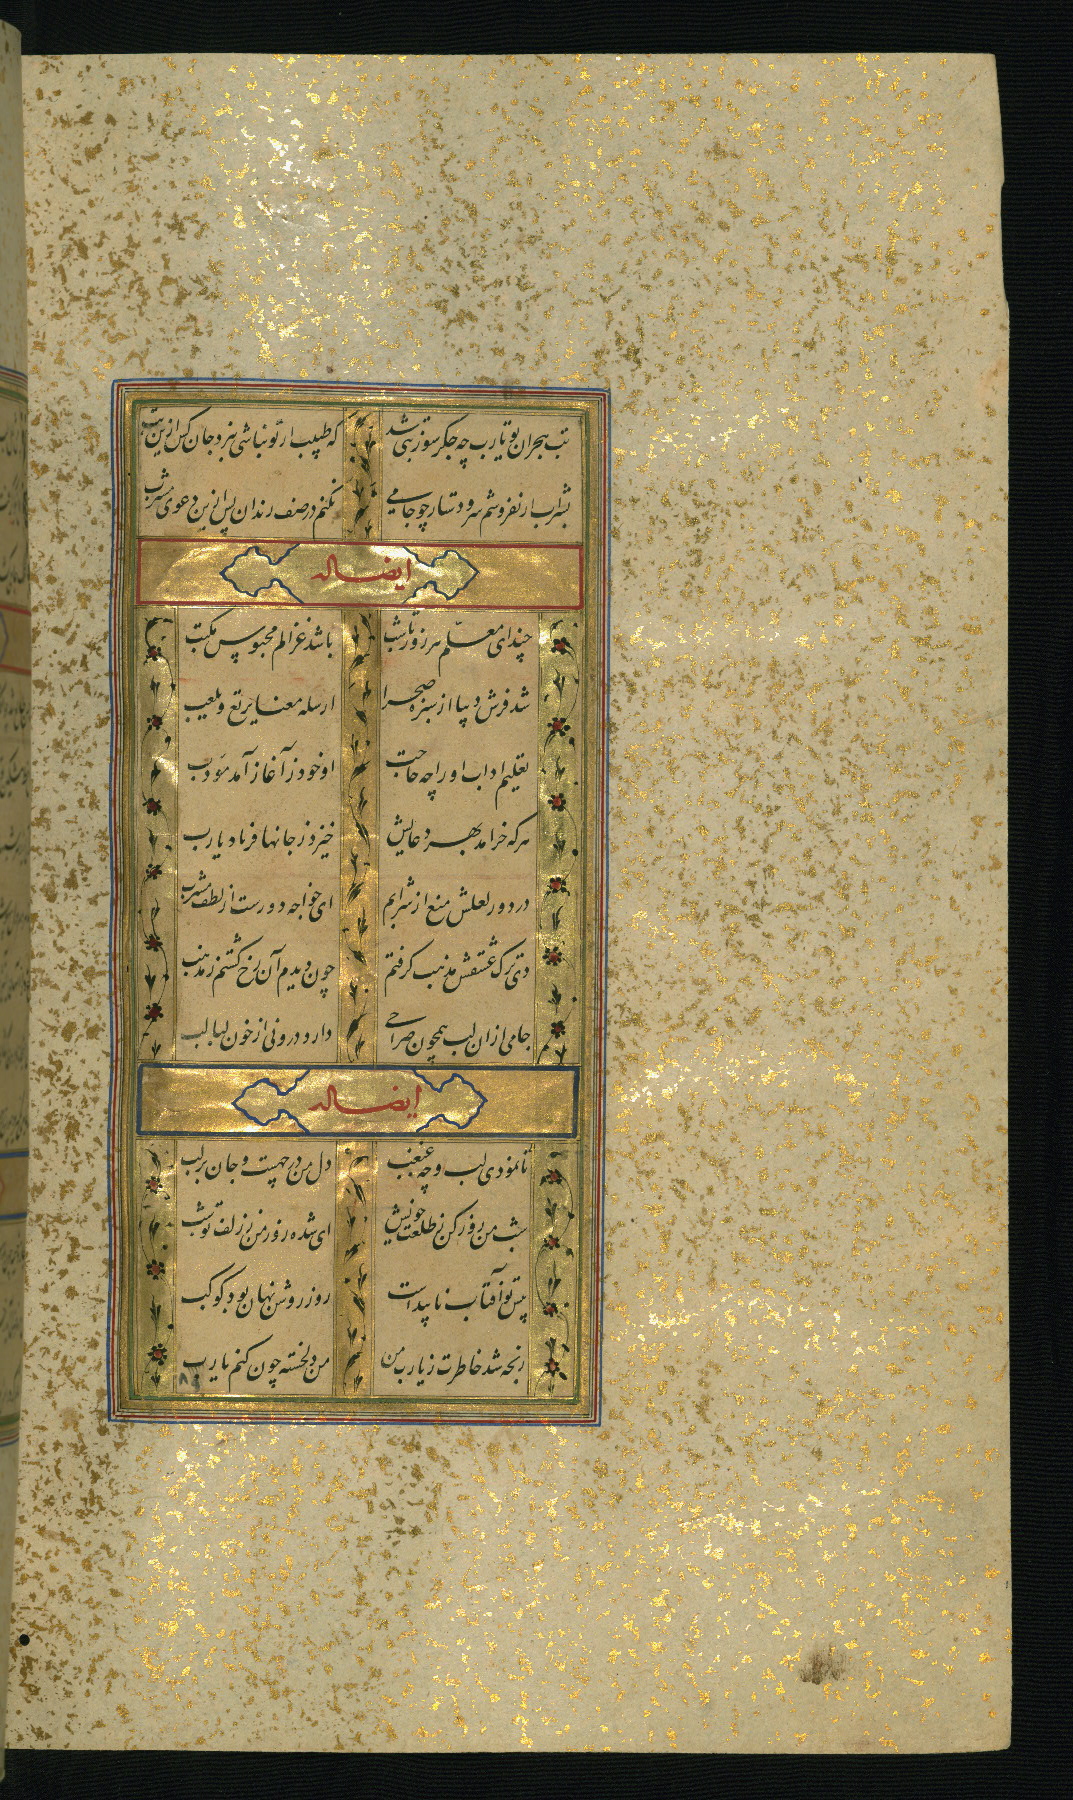 تب هجران تو یارب چه جگر سوز تبی شد که طبیب ار تو نباشی نبرد جان کس ازین تب
بشراب ار نفروشم سر و دستار چو جامی نکنم در صف رندان پس ازین دعوی مشرب
ایضاله
چند ای معلم هر روز تا شب باشد غزالم محبوس مکتب
شد فرش دیبا از سبزه صحرا ارسله معنا یرتع و یلعب
تعلیم اداب اورا چه حاجت او خود ز آغاز آمد مؤدب
هر که خرامد بهر دعایش خیزد ز جانها فریاد یارب
در دور لعلش منع از شرابم ای خواجه دورست از لطف مشرب
دی ترک عشقش مذهب گرفتم چون دیدم آن رخ گشتم ز مذهب
جامی از ان لب همچون صراحی دارد درونی از خون لبالب
ایضاله
تا نمودی لب و چه غبغب دل من در چهست و جان بر لب
شب من روز کن ز طلعت خویش ای شده روز من ز زلف تو شب
پیش تو آفتاب ناپیداست روز روشن نهان بود کوکب
رنجه شد خاطرت ز یارب من من دلخسته چون کنم یارب